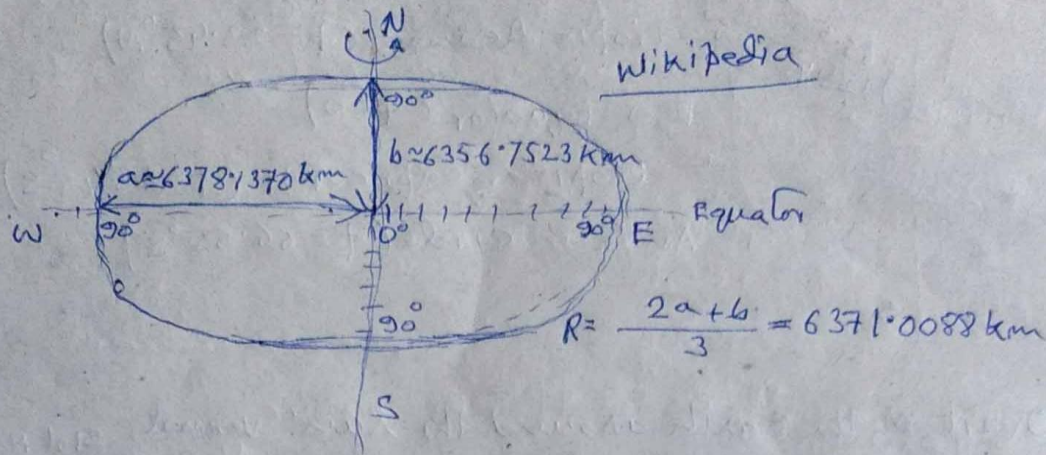 N
Wikipedia
90°
b≃6356.7523 km
a≃6378.1370 km
W 90° 0° 90° E Equator
90°
R = 2a+b / 3 = 6371.0088 km
S